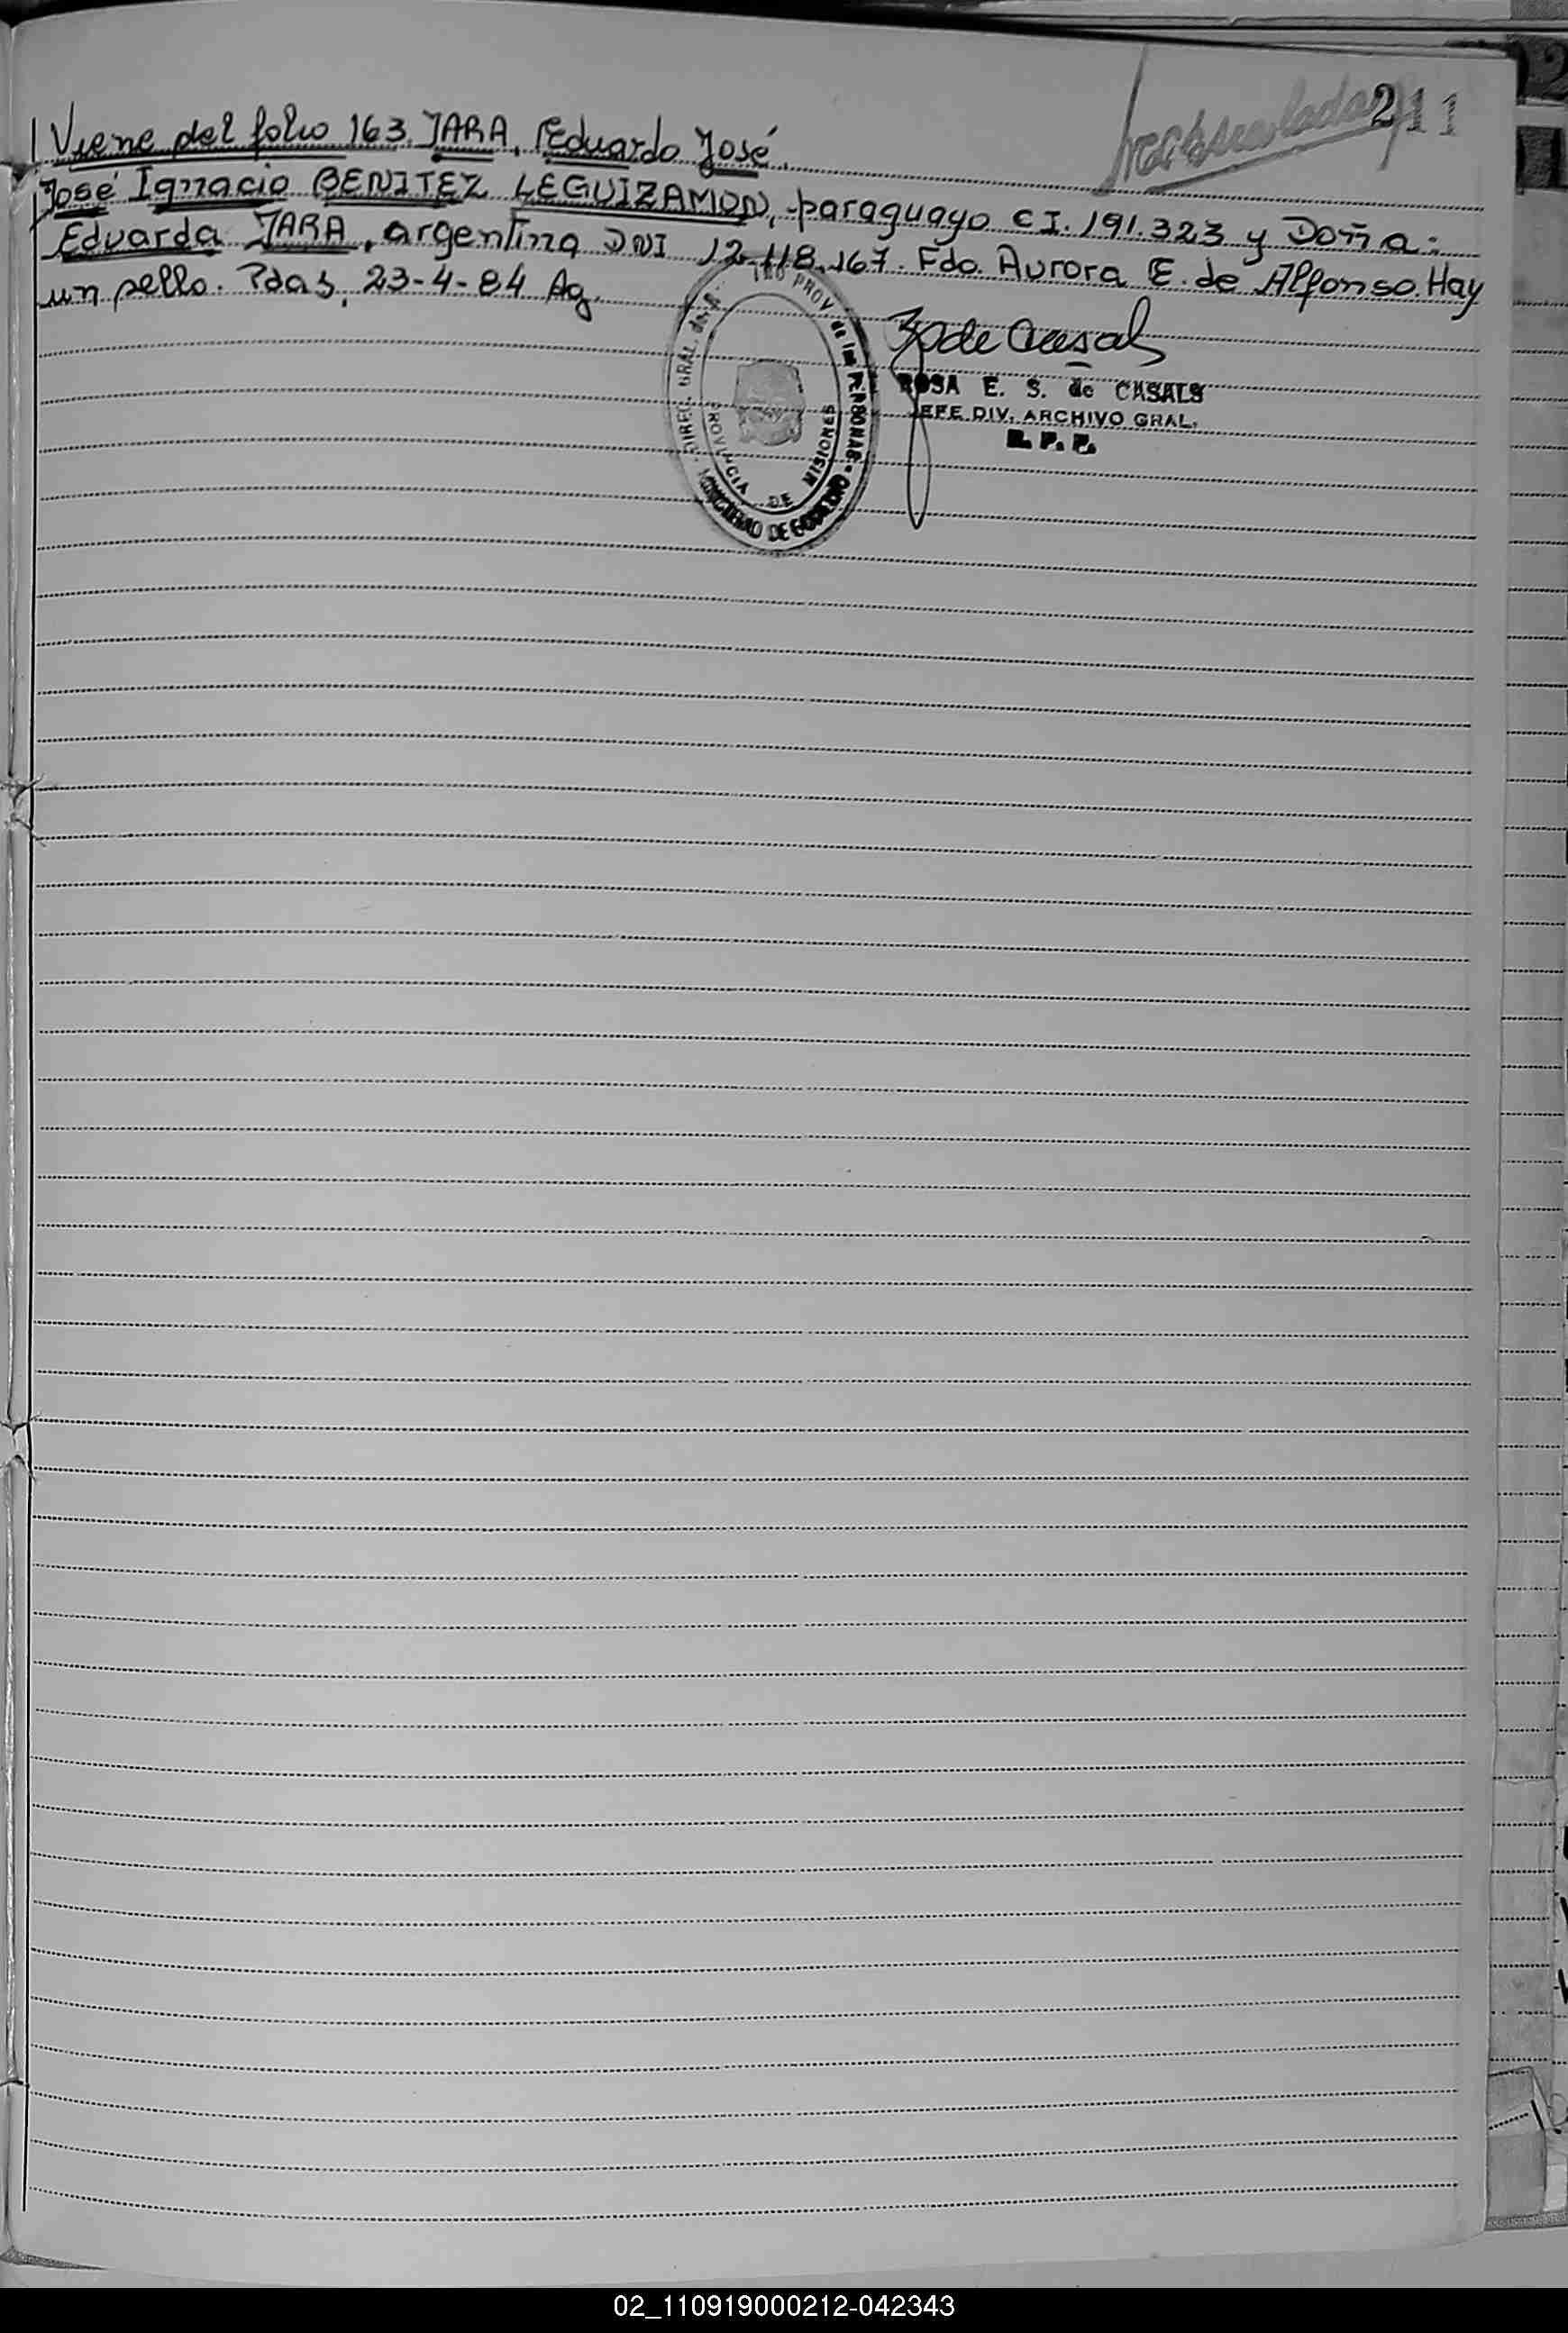 211
Viene del folio 163. JARA, Eduardo José.
José Ignacio BENITEZ LEGUIZAMON, paraguayo C I. 191.323 y Doña:
Eduarda JARA, argentina DNI 12.118.167. Fdo. Aurora E. de Alfonso. Hay
un sello. Pdas, 23-4-84 Ag.
ROSA E. S. de CASALS
JEFE DIV. ARCHIVO GRAL.
R. P. P.
PROVINCIA DE MISIONES
MINISTERIO DE GOBIERNO
02_110919000212-042343